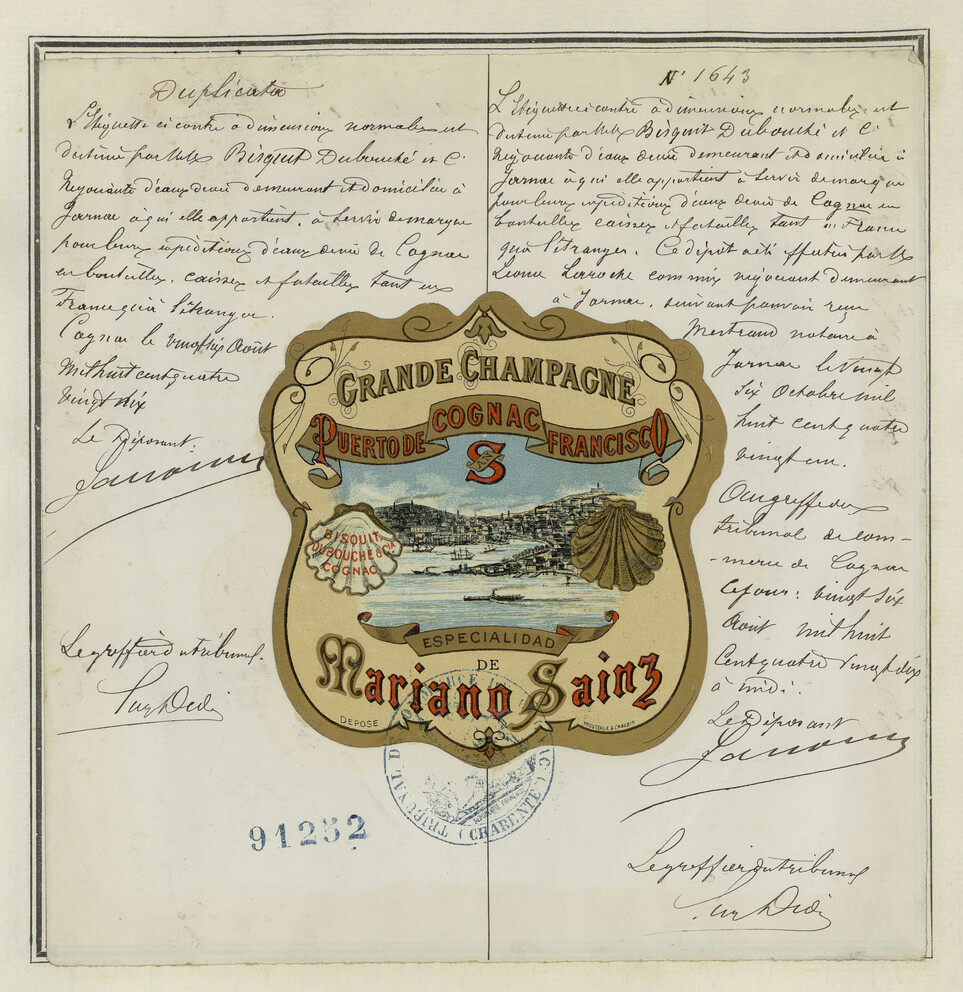 Duplicata
L'Etiquette ci contre a dimensions normales est
destinée par M.M. Bisquit Dubouché et Cie
Négociants d'eaux de vie demeurant et domiciliés à
Jarnac à qui elle appartient, à servir de marque
pour leurs expéditions d'eaux de vie de Cognac
en bouteilles, caisses et futailles tant en
France qu'à l'étranger.
Cognac le vingt six Août
Mil huit cent quatre
vingt dix
Le Déposant.
Le greffier du tribunal.
N° 1643
L'Etiquette ci contre a dimensions normales est
destinée par M.M. Bisquit Dubouché et Cie
Négociants d'eaux de vie demeurant et domiciliés à
Jarnac à qui elle appartient à servir de marque
pour leurs expéditions d'eaux de vie de Cognac en
bouteilles caisses et futailles tant en France
qu'à l'étranger. Ce dépôt a été effectué par M.
Laroche commis négociant demeurant
à Jarnac, suivant pouvoir reçu
notaire à
Jarnac le vingt
six Octobre mil
huit cent quatre
vingt un.
Au greffe du
tribunal de com-
merce de Cognac
ce jour: vingt six
Août mil huit
cent quatre vingt dix
à midi.
Le Déposant
Le greffier du tribunal
GRANDE CHAMPAGNE
COGNAC
PUERTO DE FRANCISCO
S
BISQUIT,
DUBOUCHÉ & CIA
COGNAC
ESPECIALIDAD
DE
Mariano Sainz
DEPOSE
TRIBUNAL DE COMMERCE
(CHARENTE)
91252